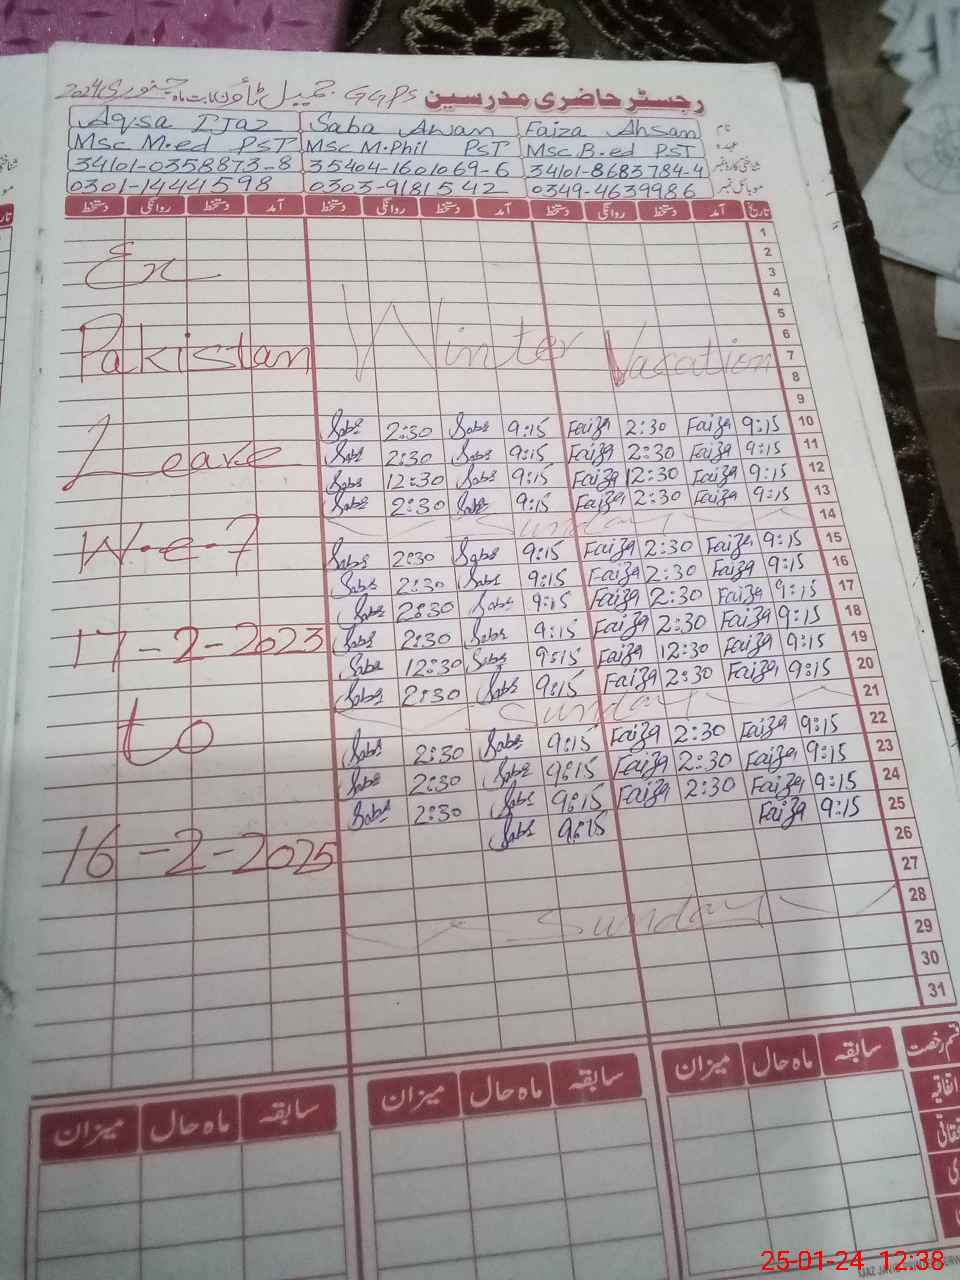 رجسٹر حاضری مدرسین GGPS جمیل ٹاؤن بابت ماہ جنوری 2024
نام Faiza Ahsan Saba Awan Aqsa Ijaz
عہدہ Msc B.ed PST Msc M.Phil PST Msc M.ed PST
شناختی کارڈ نمبر 34101-8683784-4 35404-1601069-6 34101-0358873-8
موبائل نمبر 0349-4639986 0303-9181542 0301-1444598
تاریخ آمد دستخط روانگی دستخط آمد دستخط روانگی دستخط آمد دستخط روانگی دستخط
1
2
Ex
3
4
5
6
Pakistan Winter Vacation
7
8
9
10 9:15 Faiza 2:30 Faiza 9:15 Saba 2:30 Saba
11 9:15 Faiza 2:30 Faiza 9:15 Saba 2:30 Saba
Leave
12 9:15 Faiza 12:30 Faiza 9:15 Saba 12:30 Saba
13 9:15 Faiza 2:30 Faiza 9:15 Saba 2:30 Saba
14 Sunday
W.e.f
15 9:15 Faiza 2:30 Faiza 9:15 Saba 2:30 Saba
16 9:15 Faiza 2:30 Faiza 9:15 Saba 2:30 Saba
17 9:15 Faiza 2:30 Faiza 9:15 Saba 2:30 Saba
17-2-2023
18 9:15 Faiza 2:30 Faiza 9:15 Saba 2:30 Saba
19 9:15 Faiza 12:30 Faiza 9:15 Saba 12:30 Saba
20 9:15 Faiza 2:30 Faiza 9:15 Saba 2:30 Saba
21 Sunday
to
22 9:15 Faiza 2:30 Faiza 9:15 Saba 2:30 Saba
23 9:15 Faiza 2:30 Faiza 9:15 Saba 2:30 Saba
24 9:15 Faiza 2:30 Faiza 9:15 Saba 2:30 Saba
25 9:15 Faiza 9:15 Saba
16-2-2025
26
27
28 Sunday
29
30
31
قسم رخصت سابقہ ماہ حال میزان سابقہ ماہ حال میزان سابقہ ماہ حال میزان
اتفاقیہ
25-01-24 12:38